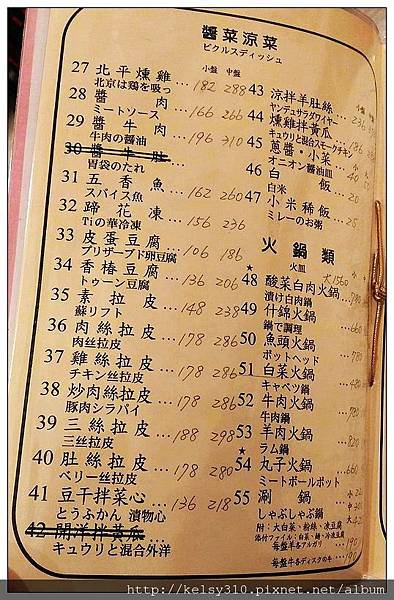 醬菜涼菜
ピクルスディッシュ
小盤 中盤
27 北平燻雞 ... 182 288
北京は鶏を吸っ
28 醬肉 ... 166 266
ミートソース
29 醬牛肉 ... 196 310
牛肉の醤油
30 醬牛肚 ...
胃袋のたれ
31 五香魚 ... 162 260
スパイス魚
32 蹄花凍 ... 156 236
Tiの華冷凍
33 皮蛋豆腐 ... 106 186
プリザーブド卵豆腐
34 香椿豆腐 ... 136 206
トゥーン豆腐
35 素拉皮 ... 148 238
蘇リフト
36 肉絲拉皮 ... 178 286
肉丝拉皮
37 雞絲拉皮 ... 178 286
チキン丝拉皮
38 炒肉絲拉皮 ... 178 286
豚肉シラパイ
39 三絲拉皮 ... 188 298
三丝拉皮
40 肚絲拉皮 ... 178 280
ベリー丝拉皮
41 豆干拌菜心 ... 136 218
とうふかん 漬物心
42 開洋拌黃瓜 ...
キュウリと混合外洋
43 涼拌羊肚絲
ヤンデュサラダワイヤー
44 燻雞拌黃瓜
キュウリと混合スモークチキン
45 蔥醬·小菜
オニオン醤油皿
46 白飯
白米
47 小米稀飯
ミレーのお粥
火鍋類
火皿
大1560
★48 酸菜白肉火鍋
漬け白肉鍋
49 什錦火鍋
鍋で調理
50 魚頭火鍋
ポットヘッド
51 白菜火鍋
キャベツ鍋
52 牛肉火鍋
牛肉鍋
53 羊肉火鍋
ラム鍋
★54 丸子火鍋
ミートボールポット
55 涮鍋
しゃぶしゃぶ鍋
附：大白菜、粉絲、凍豆腐
添付ファイル：白菜、麺、冷凍豆腐
每盤羊各アルガリ ...190
每盤牛各ディスクの牛
http://kelsy310.pixnet.net/album